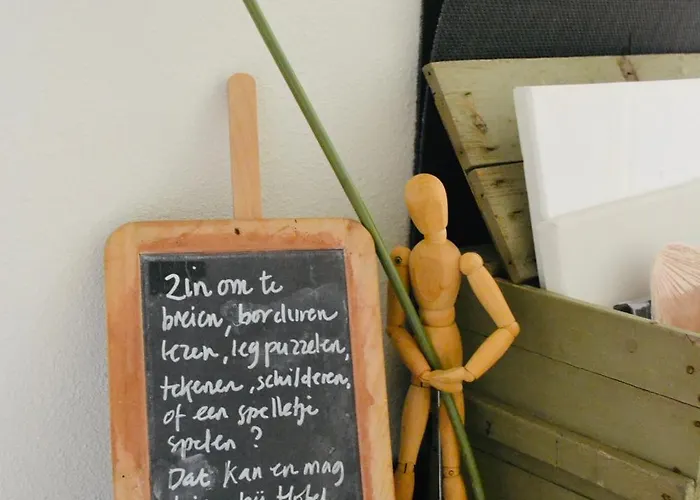 Zin om te
breien, borduren
lezen, legpuzzelen,
tekenen, schilderen,
of een spelletje
spelen?
Dat kan en mag
bij Hotel